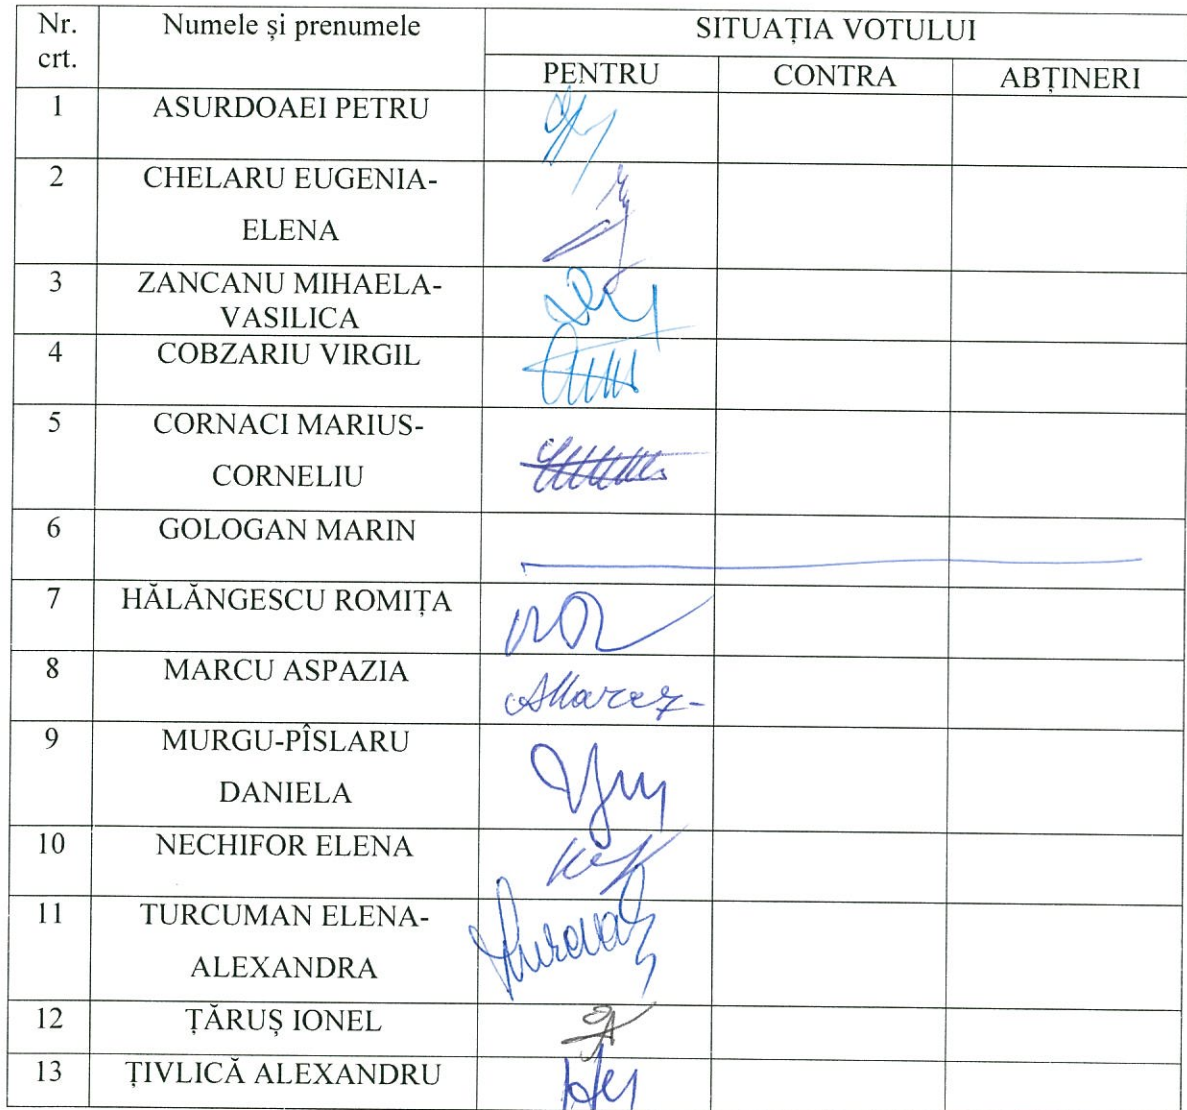 Nr. crt. Numele și prenumele SITUAȚIA VOTULUI
PENTRU CONTRA ABȚINERI
1 ASURDOAEI PETRU
2 CHELARU EUGENIA-
ELENA
3 ZANCANU MIHAELA-
VASILICA
4 COBZARIU VIRGIL
5 CORNACI MARIUS-
CORNELIU
6 GOLOGAN MARIN
7 HĂLĂNGESCU ROMIȚA
8 MARCU ASPAZIA
9 MURGU-PÎSLARU
DANIELA
10 NECHIFOR ELENA
11 TURCUMAN ELENA-
ALEXANDRA
12 ȚĂRUȘ IONEL
13 ȚIVLICĂ ALEXANDRU